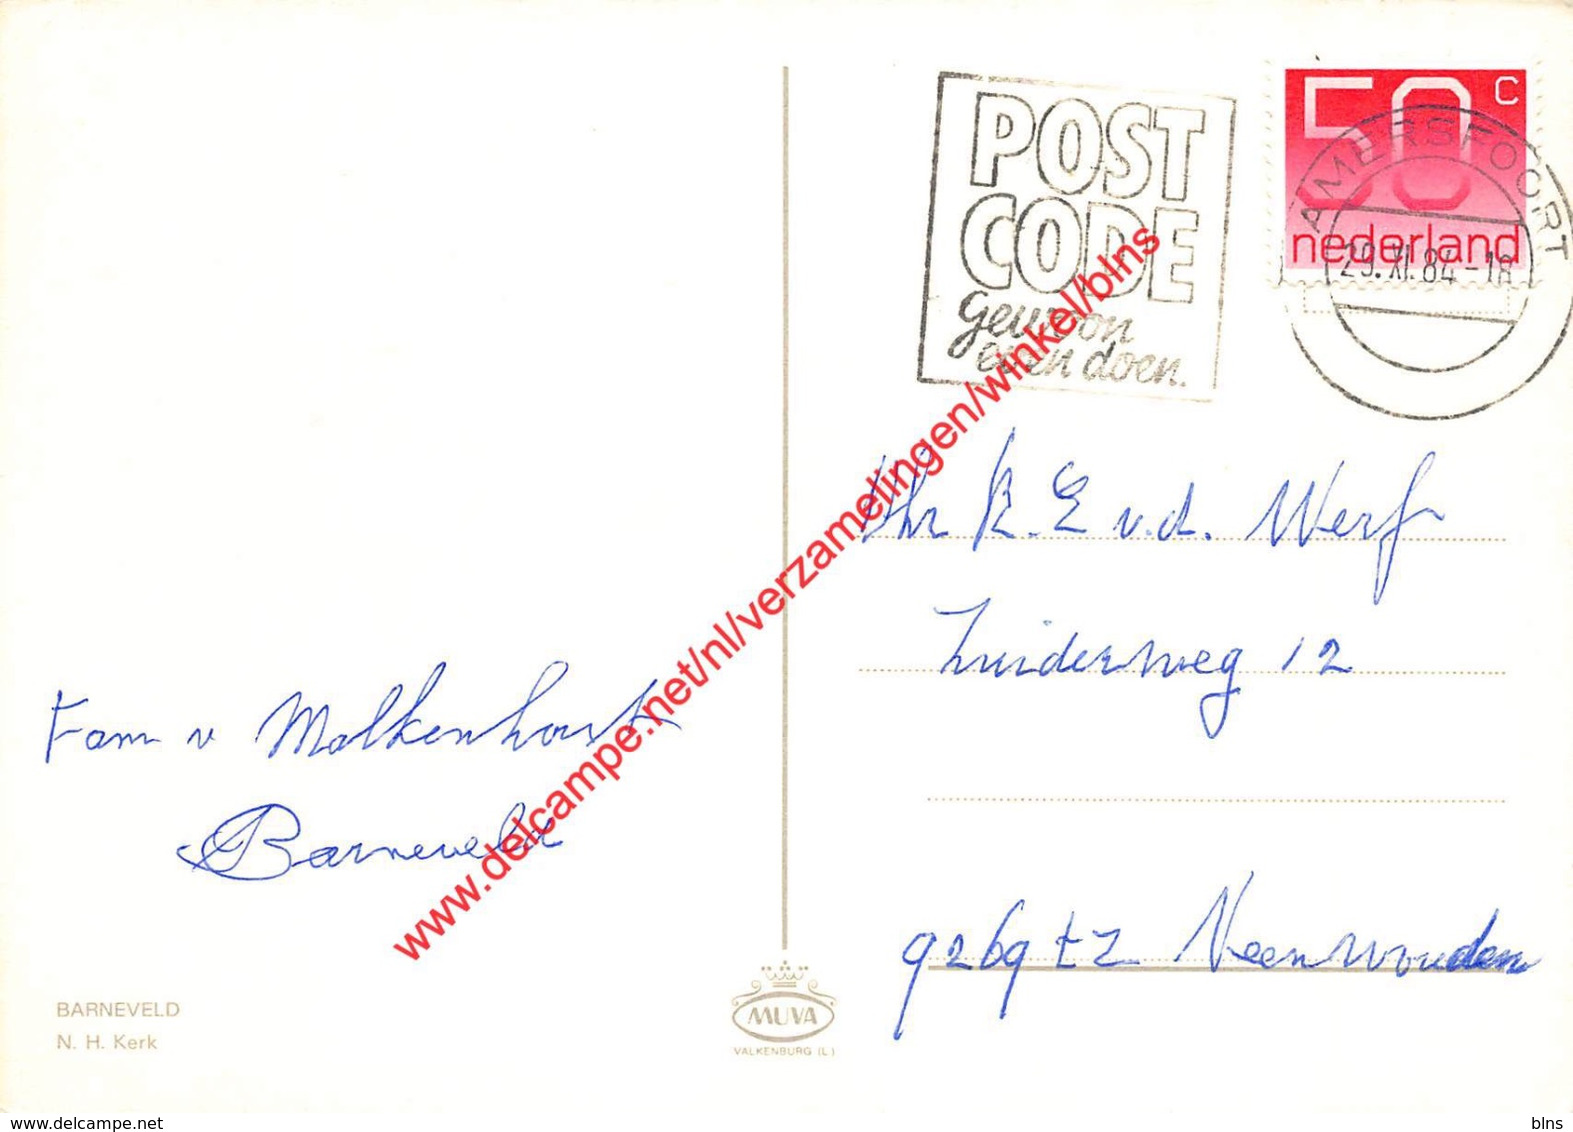 POST
CODE
gewoon
even doen.
50 c
nederland
AMERSFOORT
29.XI.84-18
Dhr R.E v.d. Werf
Zuiderweg 12
9269 TZ Veenwouden
Fam v Malkenhorst
Barneveld
BARNEVELD
N. H. Kerk
MUVA
VALKENBURG (L)
www.delcampe.net/nl/verzamelingen/winkel/blns
www.delcampe.net
blns